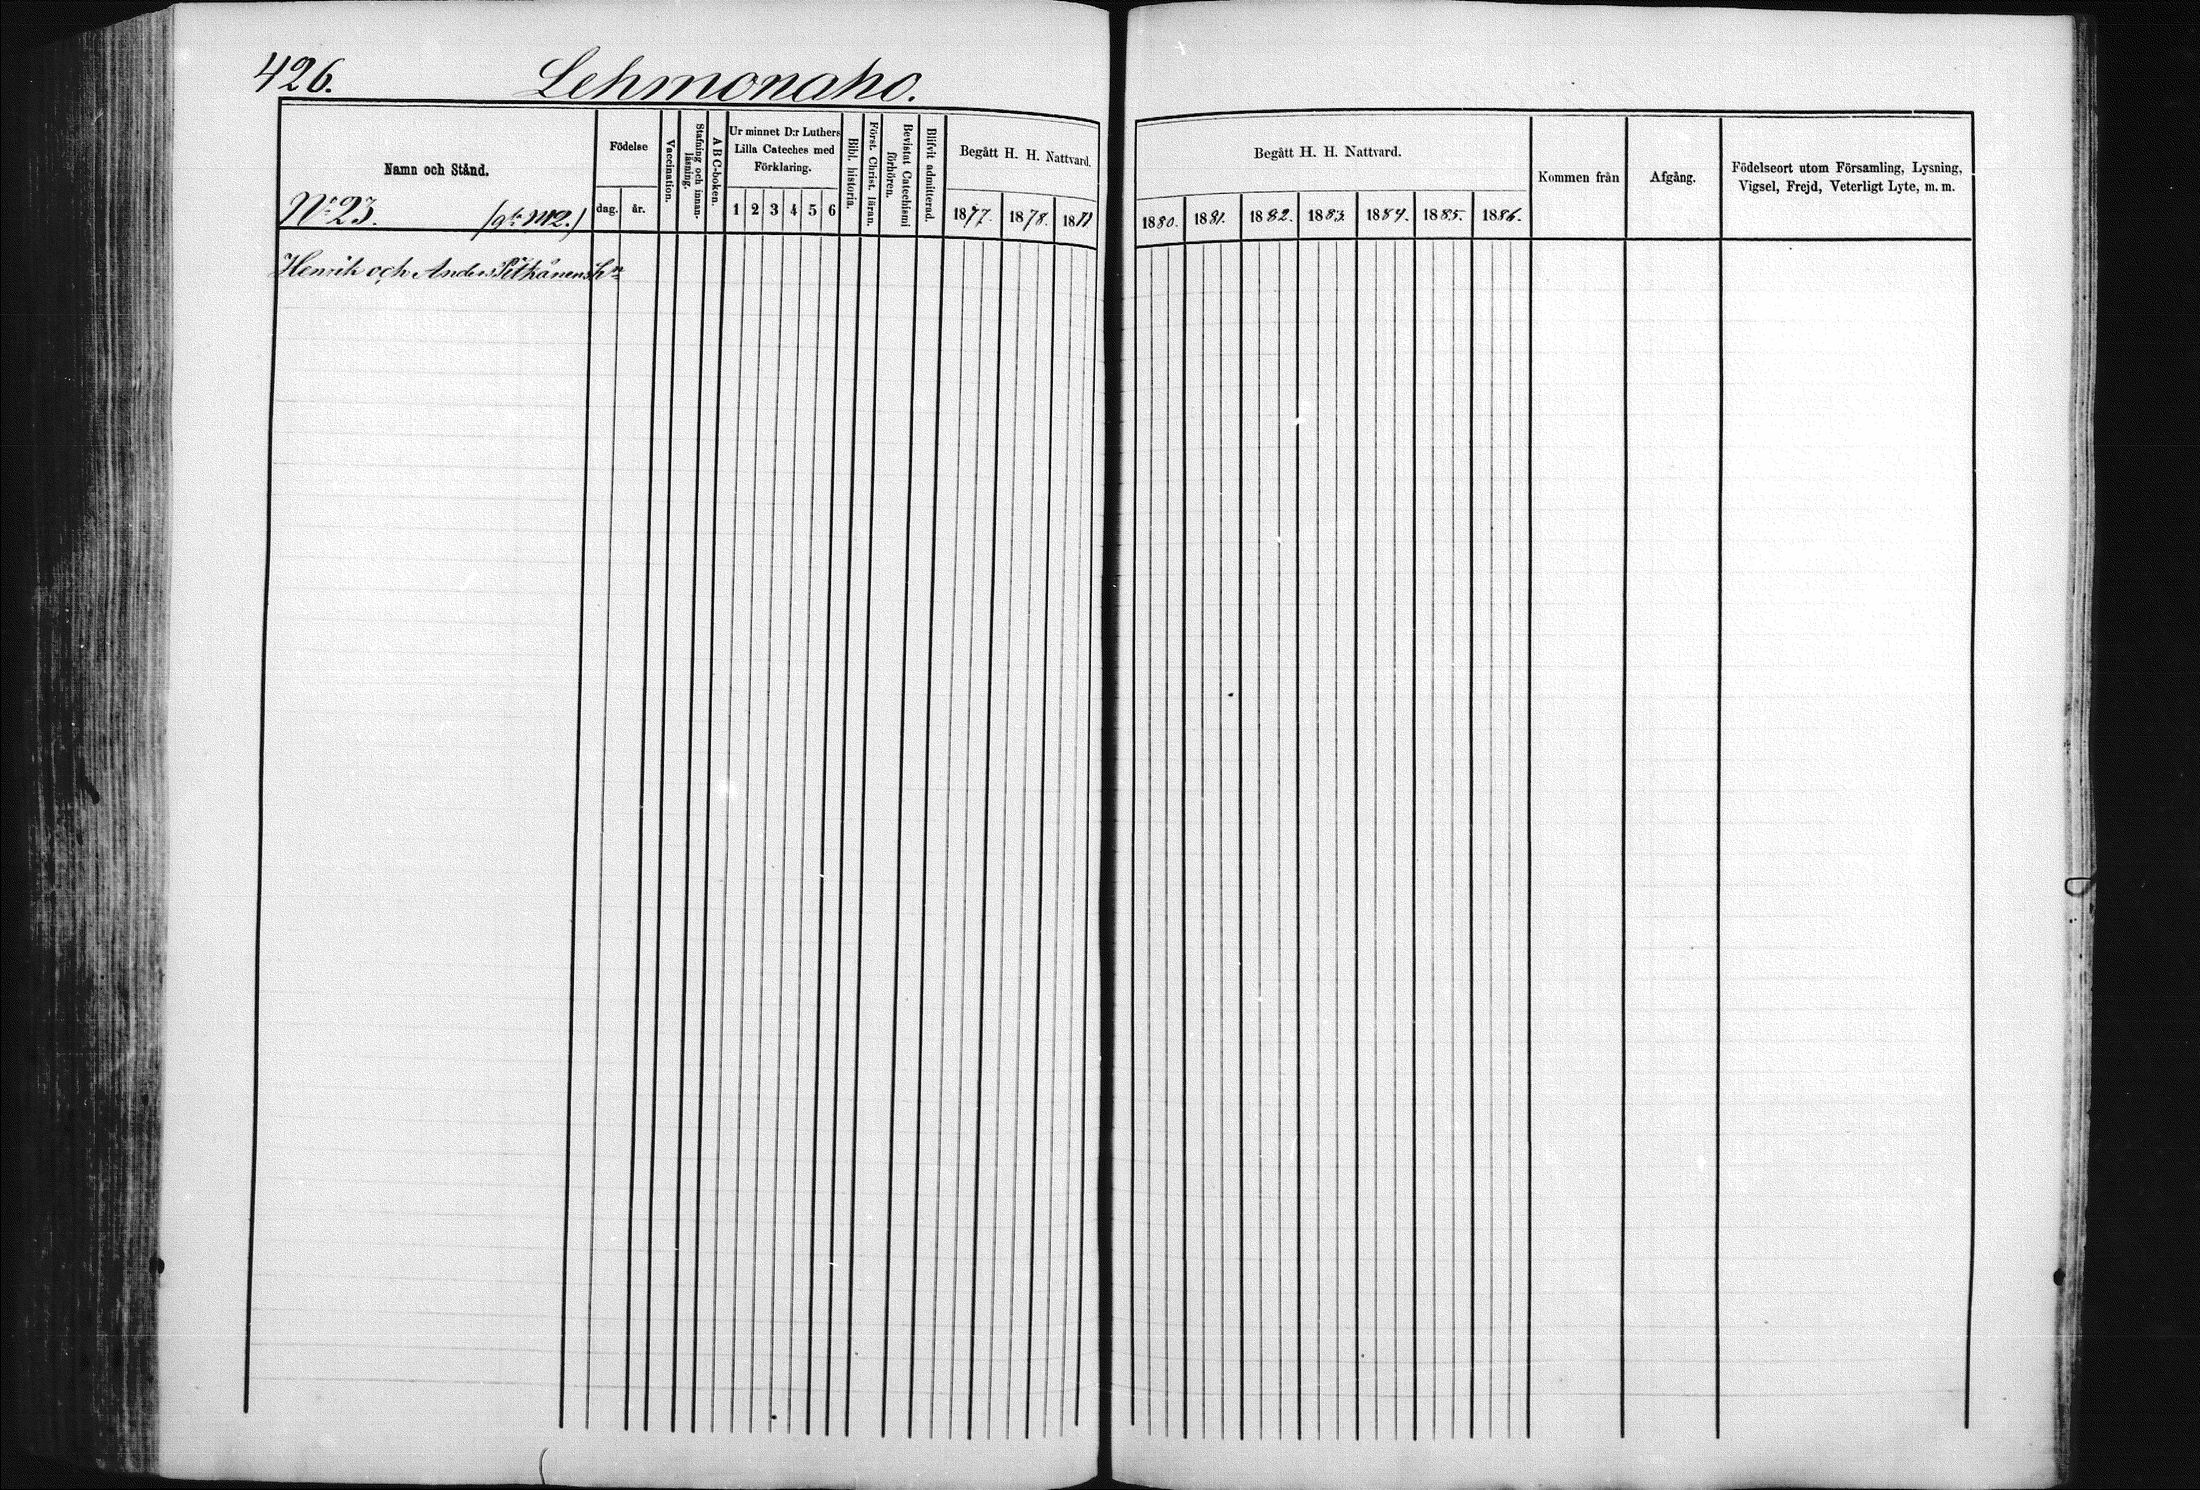 426. Lehmonaho.
Namn och Stånd.
No 23.
Födelse
dag. år.
Vaccination.
Stafning och innanläsning.
A B C-boken.
Ur minnet D:r Luthers
Lilla Cateches med
Förklaring.
1 2 3 4 5 6
Bibl. historia.
Först. Christ. läran.
Bevistat Catechismi förhören.
Blifvit admitterad.
Begått H. H. Nattvard.
1877. 1878.
Henrik och Anders
Begått H. H. Nattvard.
1880. 1881. 1882. 1883. 1884. 1885. 1886.
Kommen från
Afgång.
Födelseort utom Församling, Lysning,
Vigsel, Frejd, Veterligt Lyte, m. m.